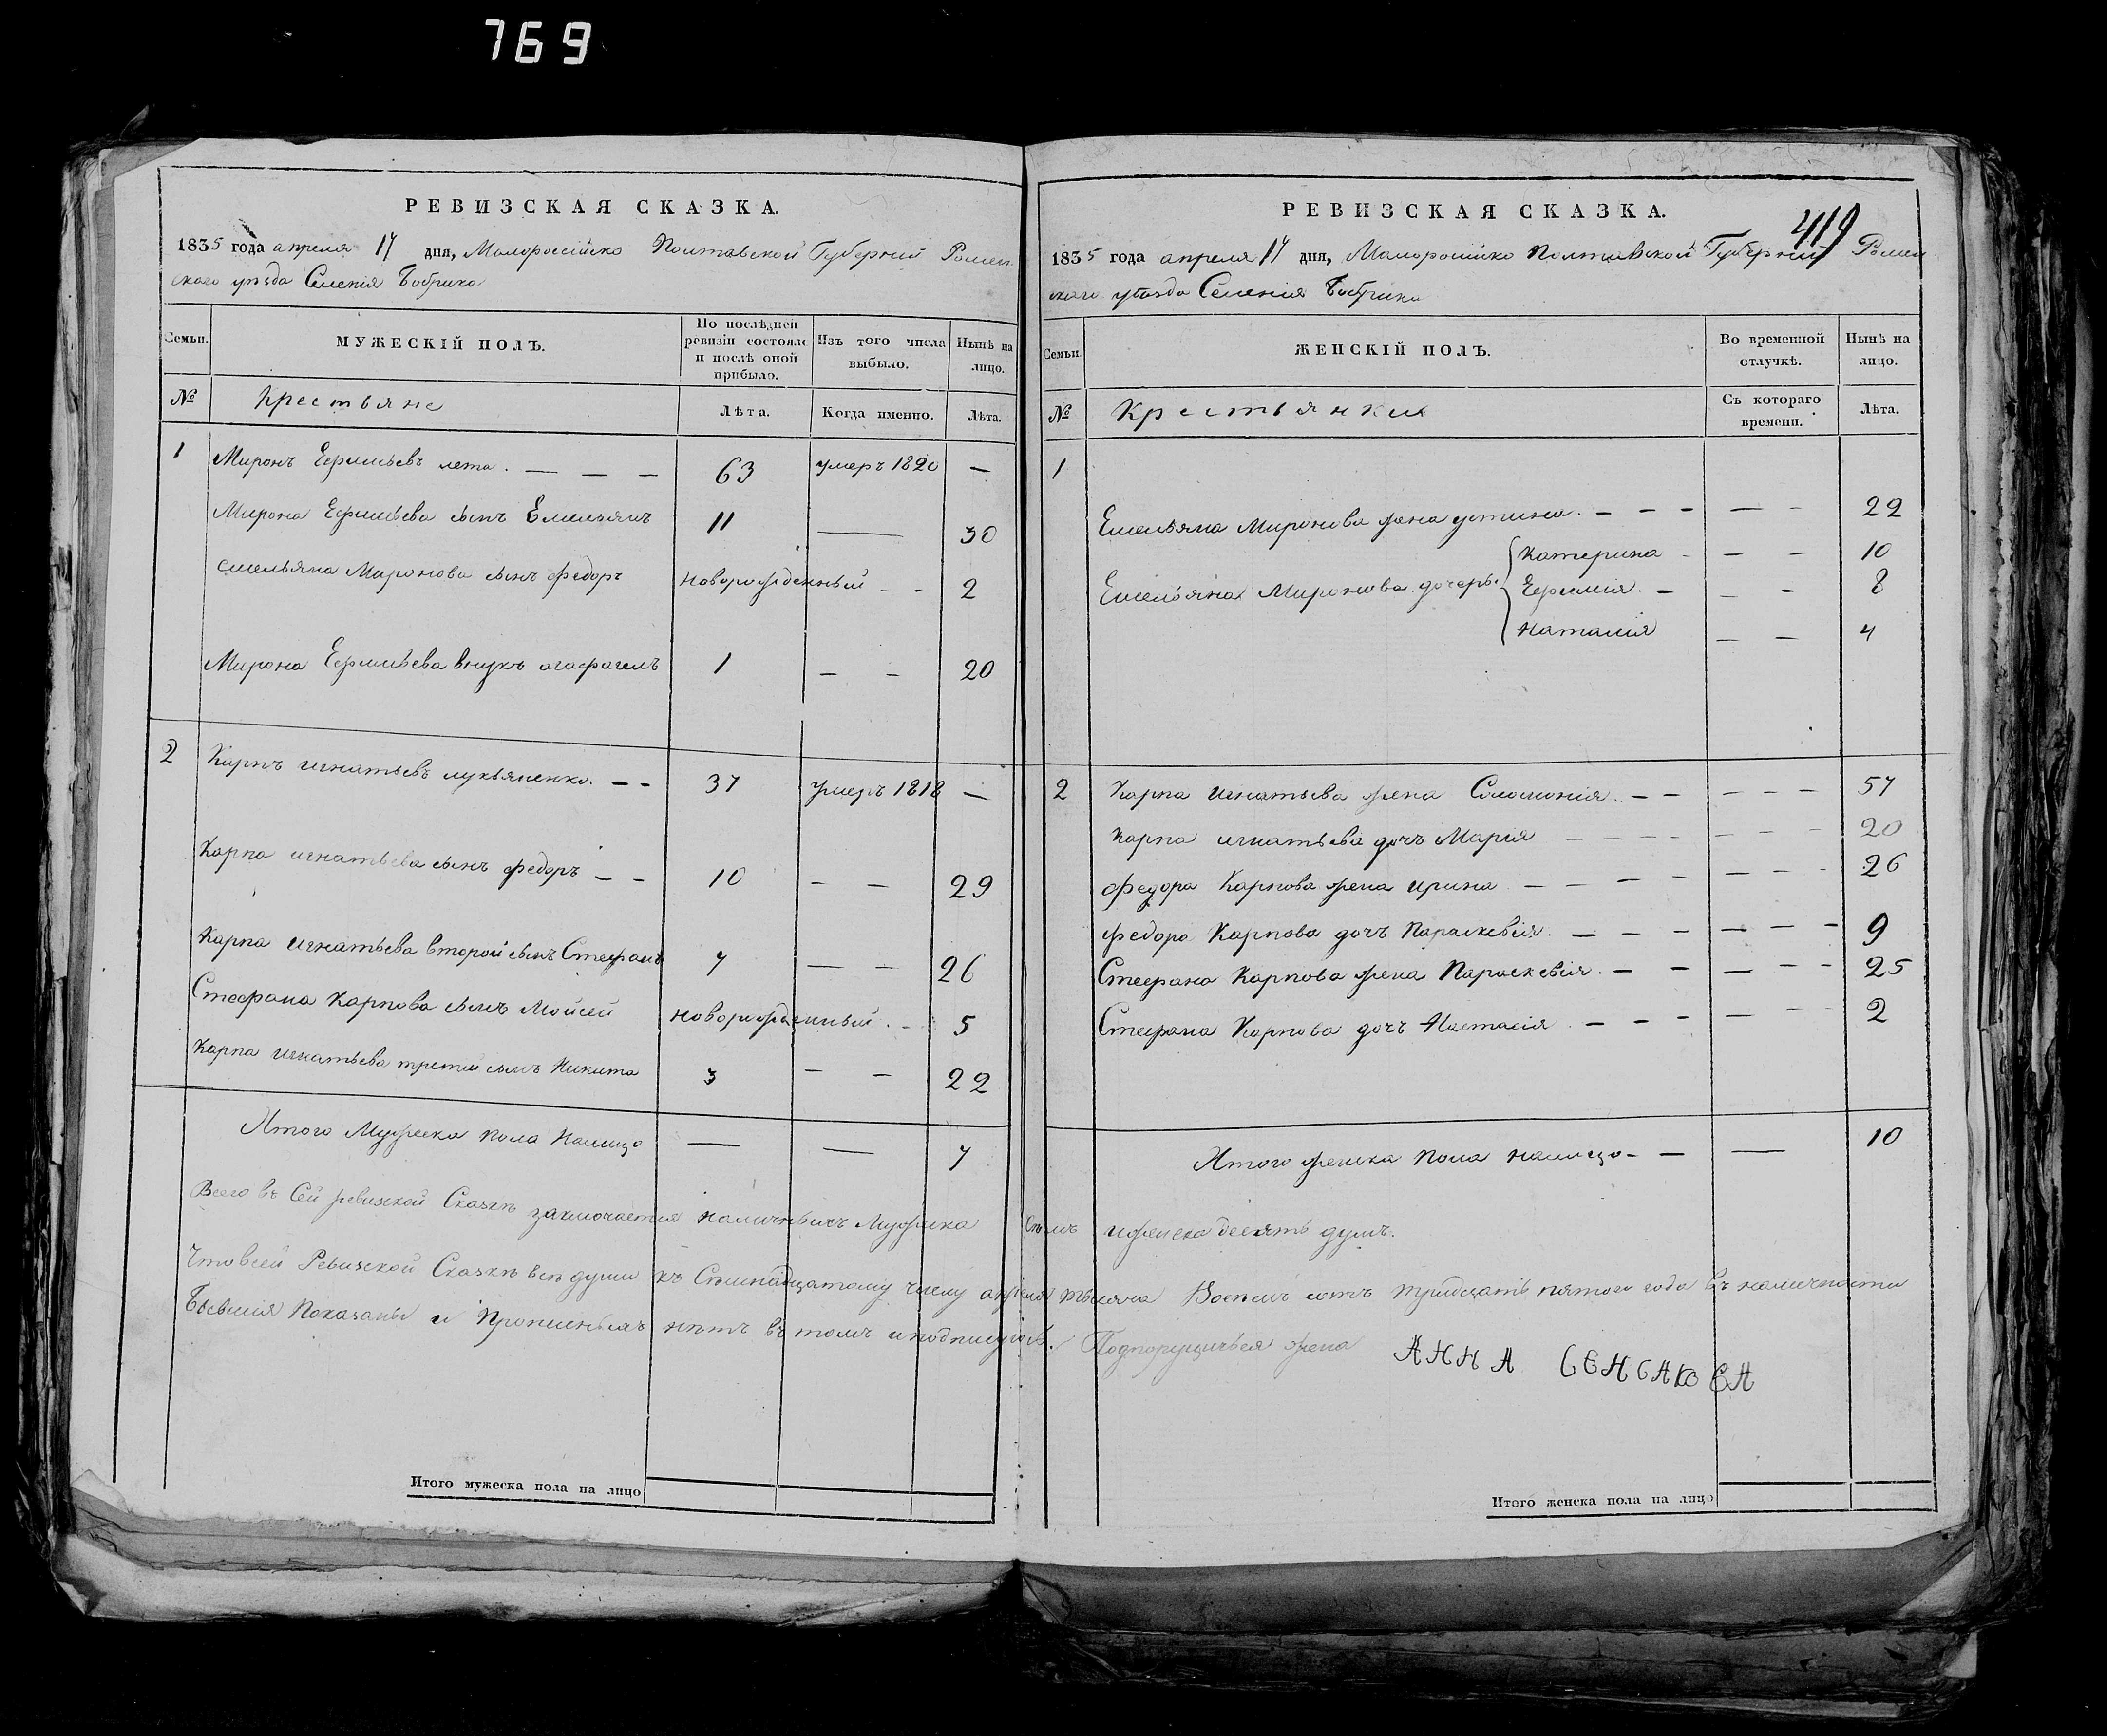 769
РЕВИЗСКАЯ СКАЗКА.
1835 года апреля 17 дня, Малоросійско Полтавской Губерніи Ромен
скаго уезда Селенія Бобрика
Семьи.
МУЖЕСКІЙ ПОЛЪ.
По послѣдней ревизіи состояло и послѣ оной прибыло.
Изъ того числа выбыло.
Нынѣ на лицо.
№
Крестьяне
Лѣта.
Когда именно.
Лѣта.
1 Миронъ Ефимьевъ лета. — — — 63 умеръ 1820 —
Мирона Ефимьева сынъ Емельянъ 11 — 30
Емельяна Миронова сынъ федоръ новорожденный - - 2
Мирона Ефимьева внукъ агафагелъ 1 — — 20
2 Карпъ игнатьевъ лукьяненко. — — 37 умеръ 1818 —
Карпа игнатьева сынъ федоръ — — 10 — — 29
Карпа игнатьева второй сынъ Стефанъ 7 — — 26
Стефана Карпова сынъ Мойсей новорожденный . - 5
Карпа игнатьева третій сынъ Никита 3 — — 22
Итого Мужеска пола налицо — — 7
Итого мужеска пола на лицо
419
РЕВИЗСКАЯ СКАЗКА.
1835 года апреля 17 дня, Малоросійско Полтавской Губерніи Ромен
скаго уѣзда Селенія Бобрика
Семьи.
ЖЕНСКІЙ ПОЛЪ.
Во временной отлучкѣ.
Нынѣ на лицо.
№
Крестьянки
Съ котораго времени.
Лѣта.
1
Емельяна Миронова жена устина. — — — — - 22
Емельяна Миронова дочерь. Катерина - — — 10
Ефимія. — — - 8
Наталія — — 4
2 Карпа игнатьева жена Соломонія. — — — — — 57
Карпа игнатьева дочъ Марія — — — — — — — 20
федора Карпова жена ирина — — — — — — — 26
федора Карпова дочъ Параскевія. — — — — — — 9
Стефана Карпова жена Параскевія. — — — — - 25
Стефана Карпова дочъ Настасія. — — — — — - 2
Итого женска пола налицо — — — 10
Всего въ Сей ревизской Сказкѣ заключается наличныхъ Мужеска Сѣмъ иженска десять душъ.
Что всей Ревизской Сказкѣ всѣ души къ Сѣмнадцатому числу апреля тысяча Восемъ сотъ тридцать пятого года въ наличности
бывшія Показаны и Пропиеныхъ нѣтъ въ томъ иподписуюсь. Подпорущичья жена АННА СЕНСАКОВА
Итого женска пола на лицо